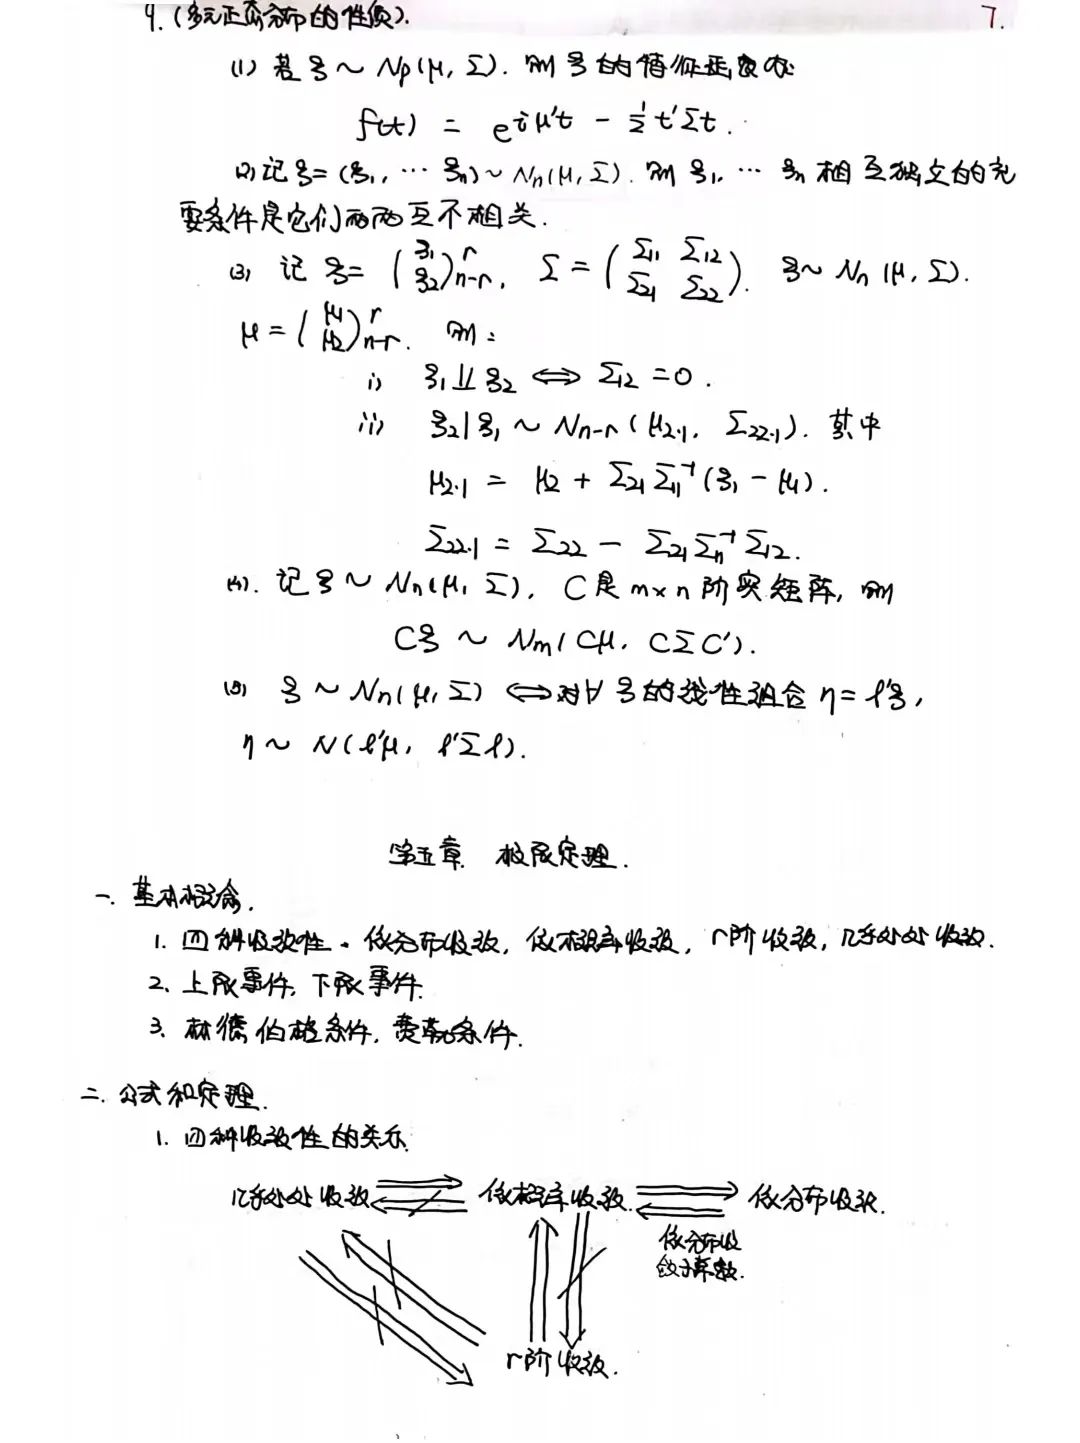 9. (多元正态分布的性质).
7.
(1) 若 ξ ~ Np(μ, Σ). 则 ξ 的特征函数为
f(t) = e^{iμ't - ½t'Σt}.
(2) 记 ξ = (ξ1, ⋯ ξn) ~ Nn(μ, Σ). 则 ξ1, ⋯ ξn 相互独立的充
要条件是它们两两互不相关.
(3) 记 ξ = (ξ1 ξ2) r n-r, Σ = (Σ11 Σ12 Σ21 Σ22). ξ ~ Nn(μ, Σ).
μ = (μ1 μ2) r n-r. 则:
i) ξ1 ⫫ ξ2 ⟺ Σ12 = 0.
ii) ξ2|ξ1 ~ Nn-r(μ2·1, Σ22·1). 其中
μ2·1 = μ2 + Σ21Σ11⁻¹(ξ1 - μ1).
Σ22·1 = Σ22 - Σ21Σ11⁻¹Σ12.
(4). 记 ξ ~ Nn(μ, Σ), C是 m×n 阶实矩阵, 则
Cξ ~ Nm(Cμ, CΣC').
(5) ξ ~ Nn(μ, Σ) ⟺ 对∀ ξ 的线性组合 η = ℓ'ξ,
η ~ N(ℓ'μ, ℓ'Σℓ).
第五章 极限定理.
一. 基本概念.
1. 四种收敛性. 依分布收敛, 依概率收敛, r阶收敛, 几乎处处收敛.
2. 上限事件, 下限事件.
3. 林德伯格条件, 费勒条件.
二. 公式和定理.
1. 四种收敛性的关系
几乎处处收敛 依概率收敛 依分布收敛.
依分布收
敛于常数.
r阶收敛.